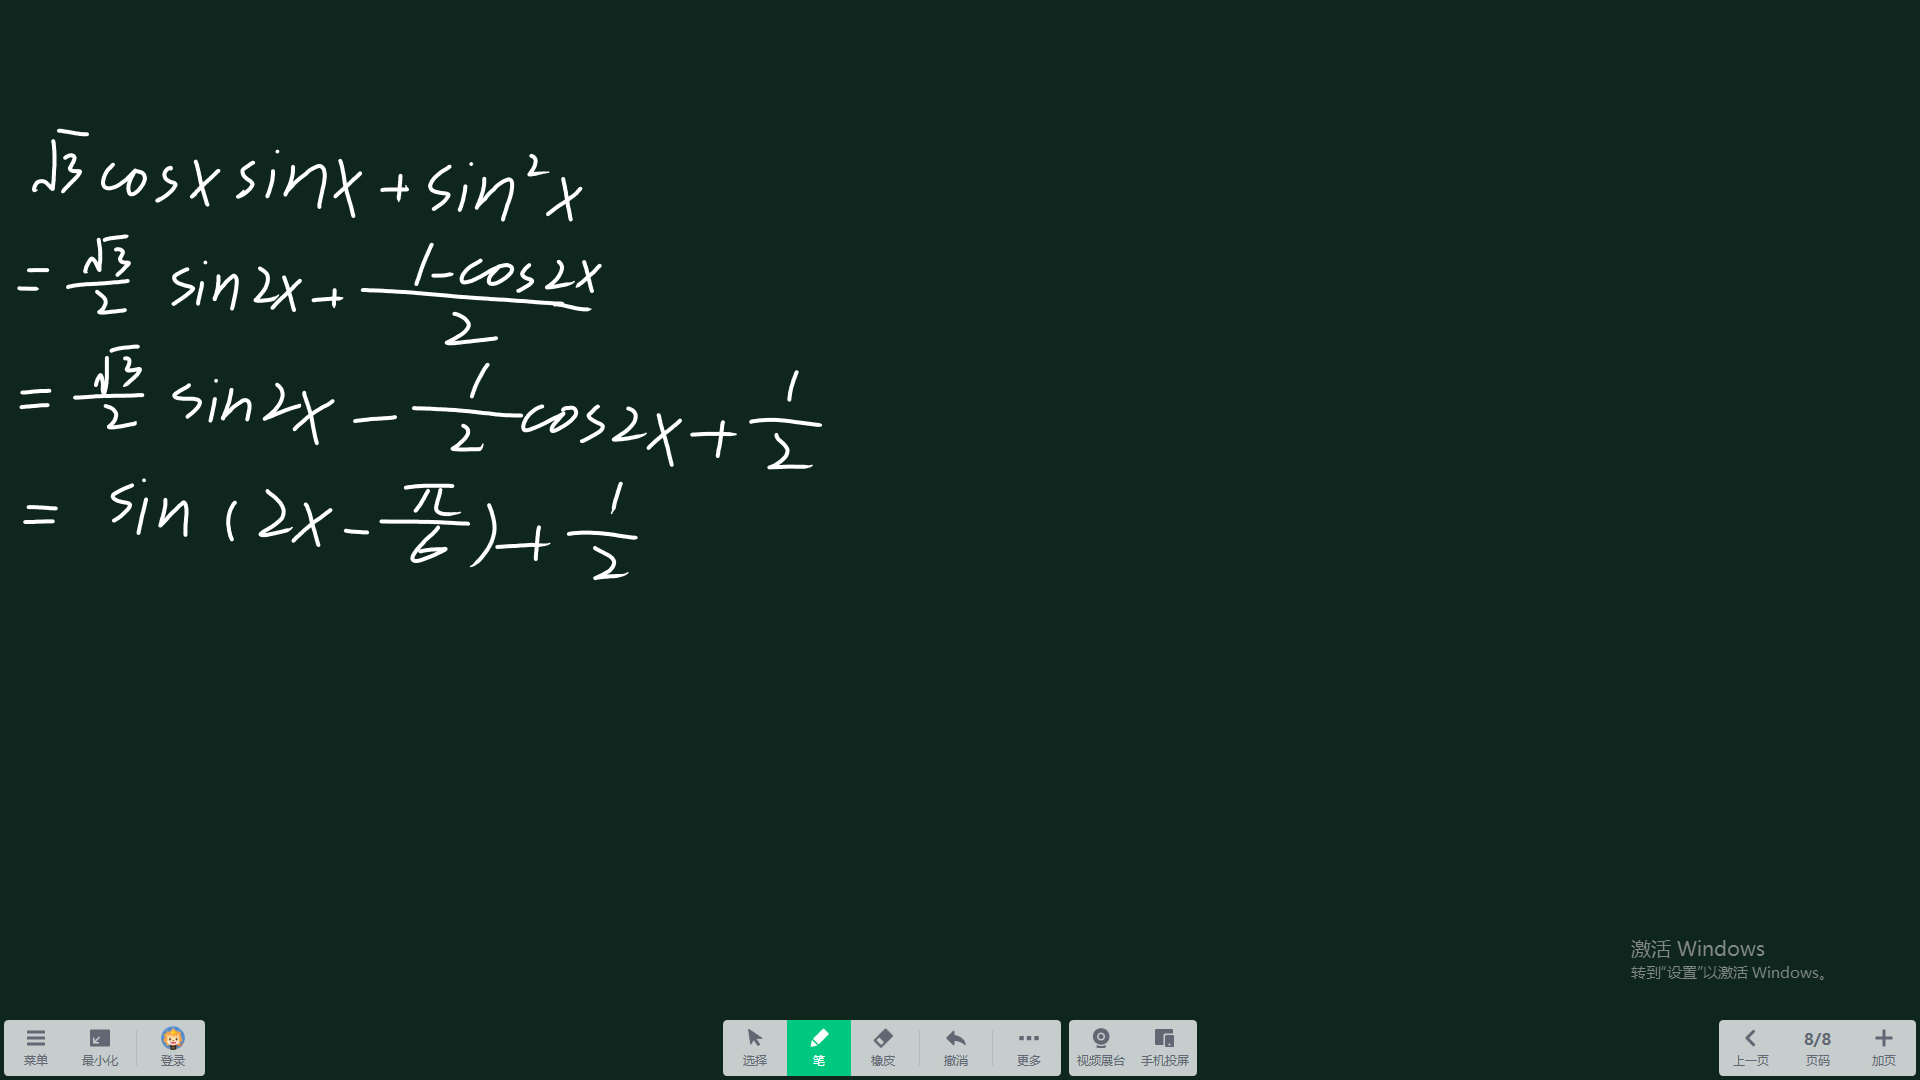 √3 cosx sinx + sin²x
= √3/2 sin2x + (1-cos2x)/2
= √3/2 sin2x - 1/2 cos2x + 1/2
= sin(2x - π/6) + 1/2
激活 Windows
转到“设置”以激活 Windows。
菜单 最小化 登录 选择 笔 橡皮 撤消 更多 视频展台 手机投屏 上一页 8/8 页码 加页